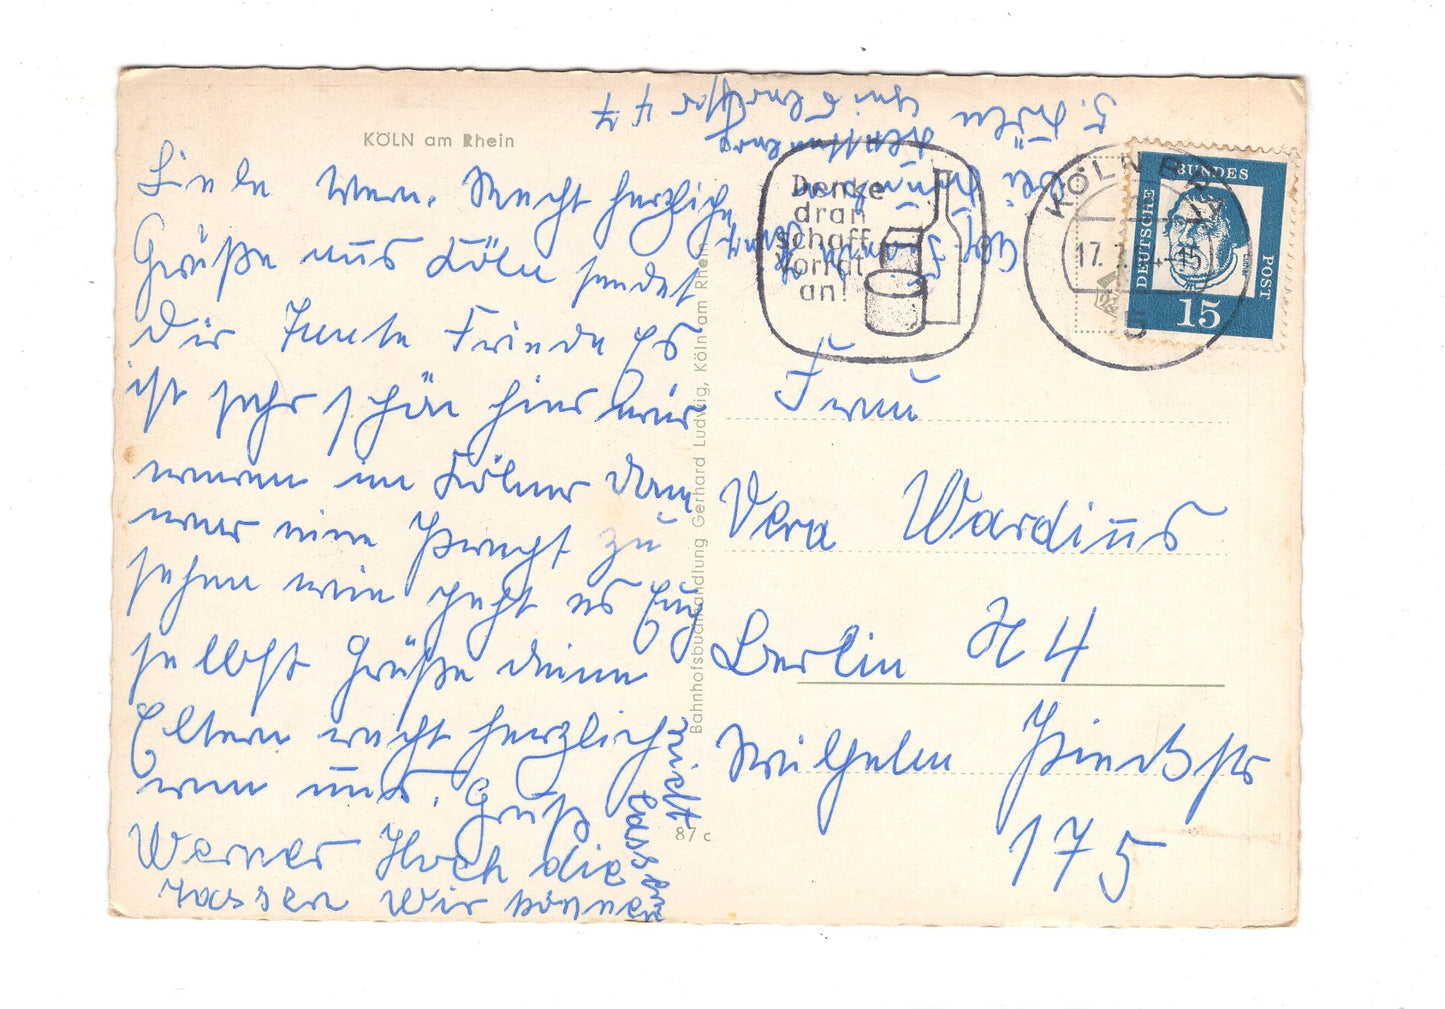 KÖLN am Rhein
Liebe Wera. Recht herzliche
Grüße aus Köln sendet
Dir Tante Friede Es
ist sehr schön hier wir
waren im Kölner Dom
war eine Pracht zu
sehen wie geht es Euch
selbst Grüße deine
Eltern recht herzlich
von uns. Gruß
Werner Hoch die
Tassen wir können
nicht
lassen
87 c
Bahnhofsbuchhandlung Gerhard Ludwig, Köln am Rhein
5. Köln
47
bei
Denke
dran
schaff
Vorrat
an!
KÖLN
17.7.
5
BUNDES
DEUTSCHE
POST
15
Frau
Vera Wardius
Berlin N 4
Wilhelm Pieckstr
175